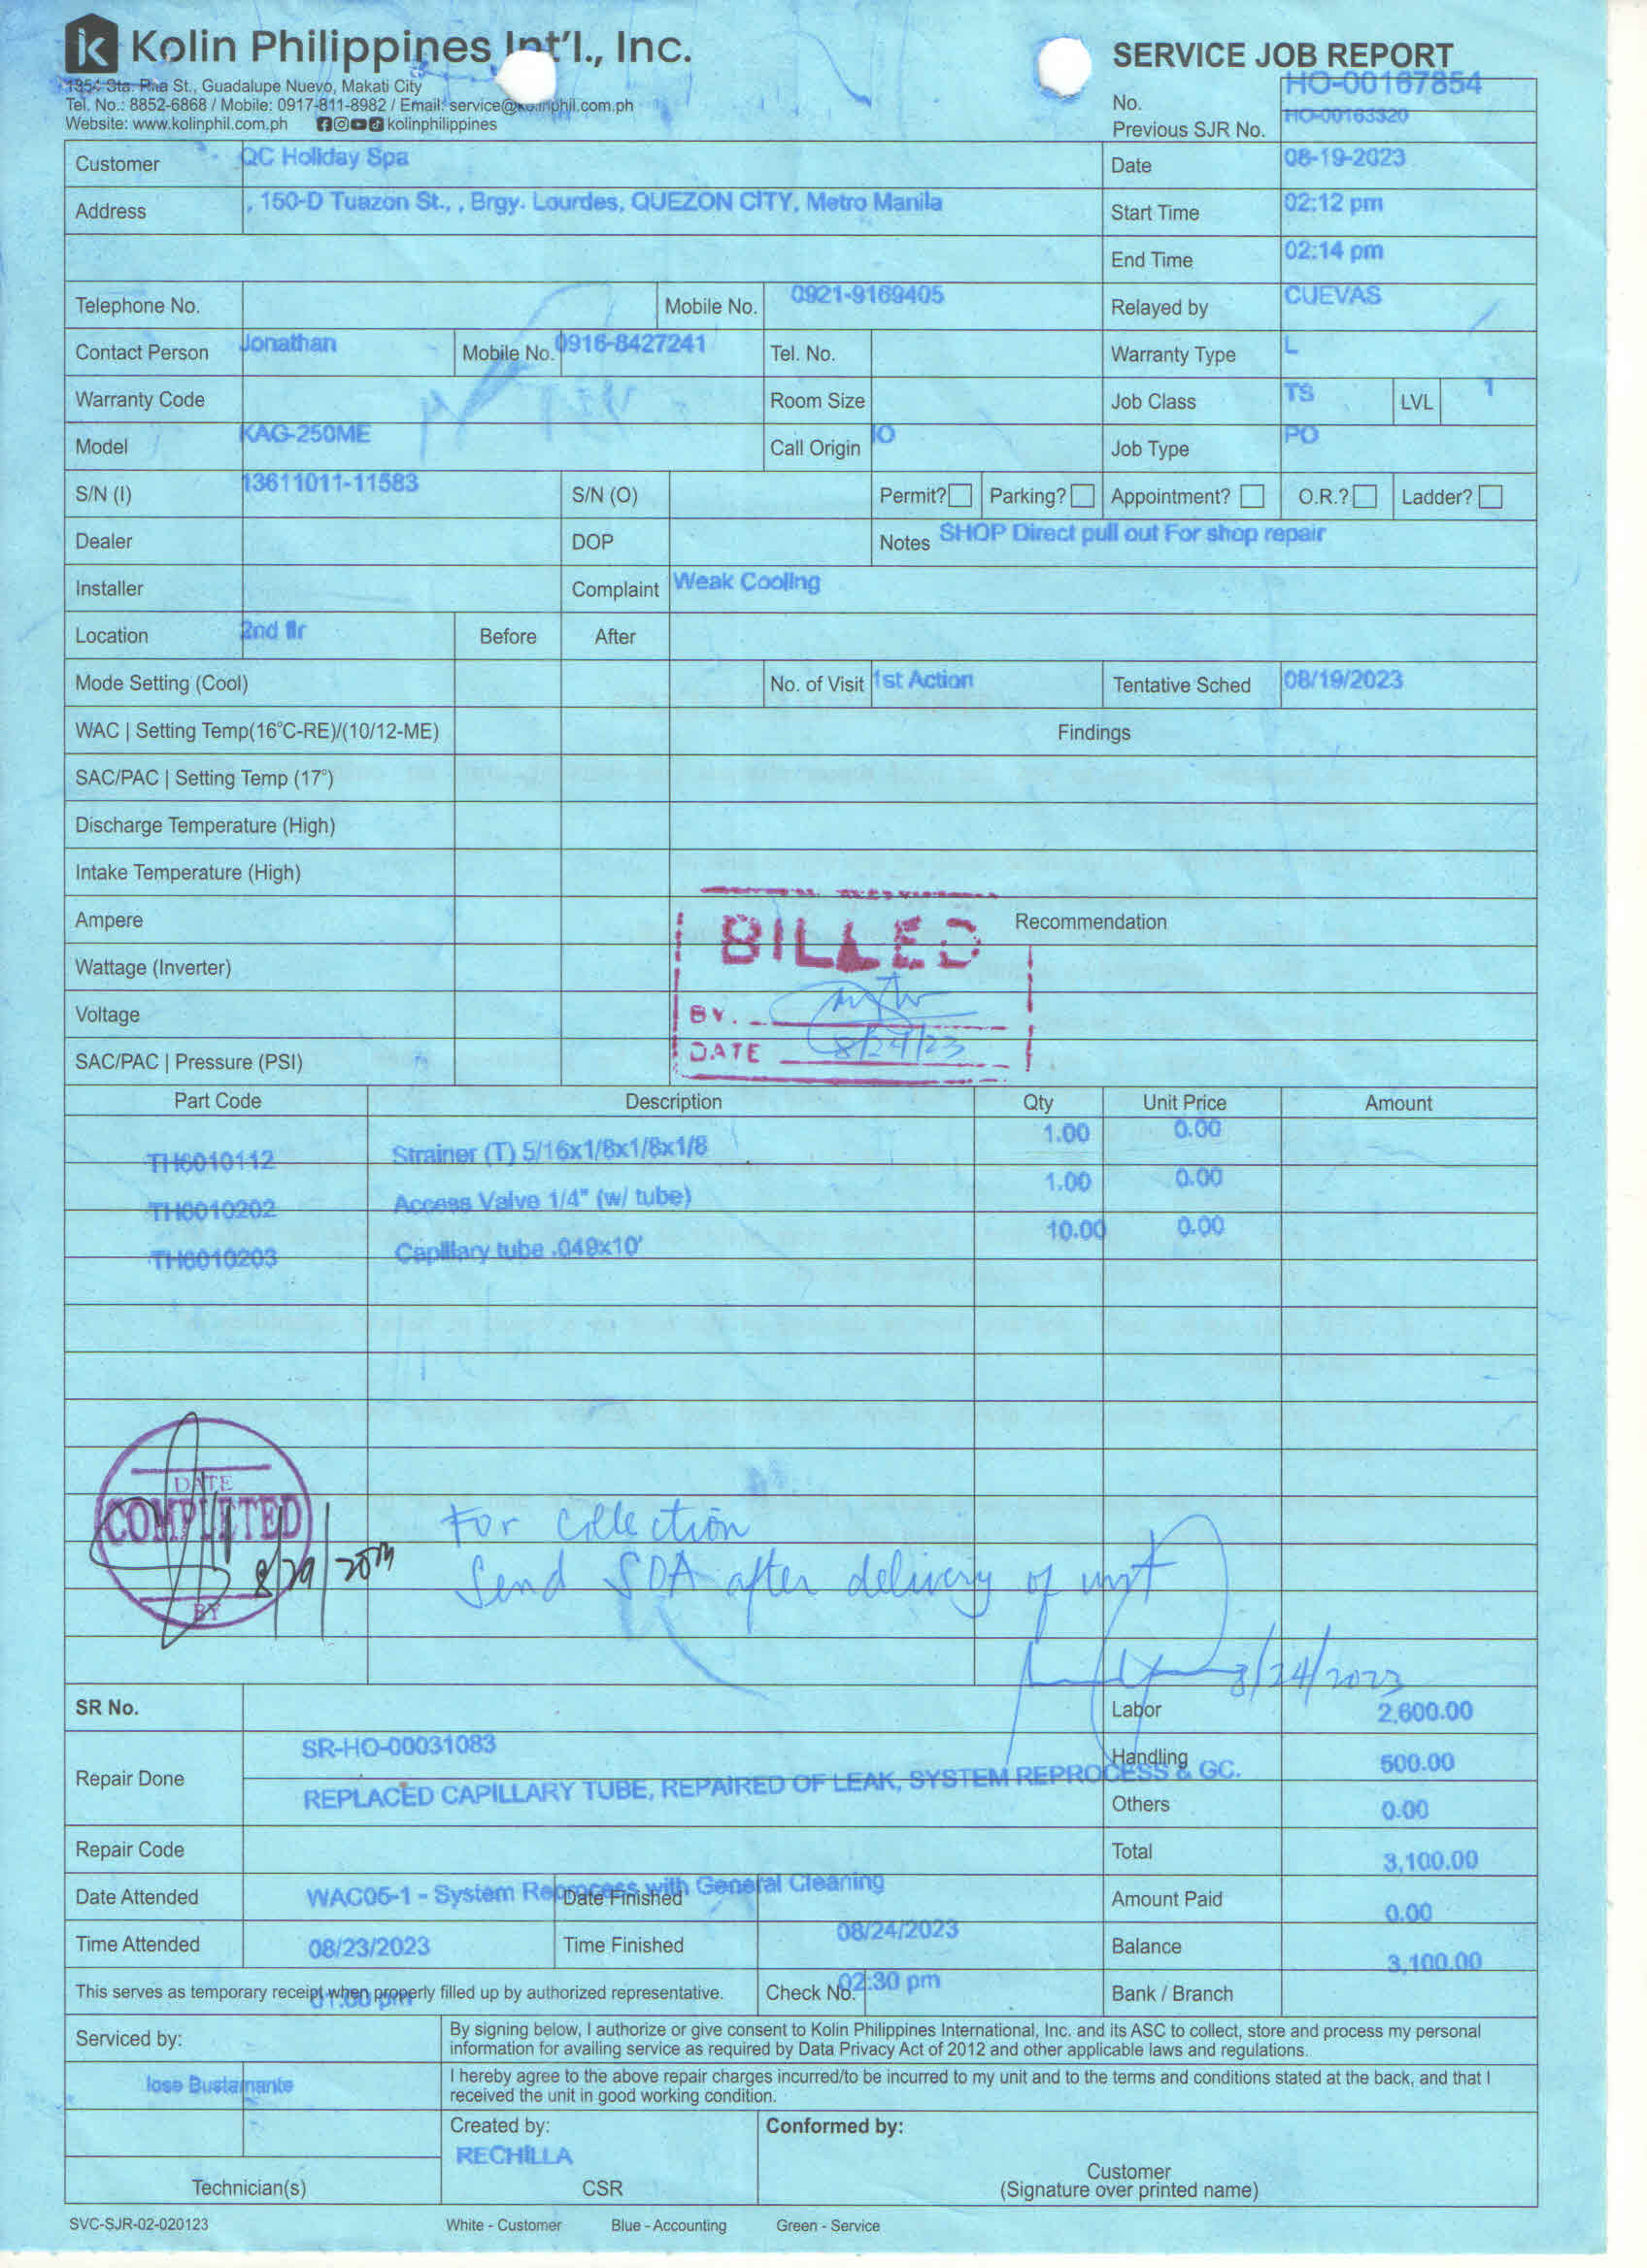 Kolin Philippines Int'l., Inc.
SERVICE JOB REPORT
1354 Sta. Rita St., Guadalupe Nuevo, Makati City
Tel. No.: 8852-6868 / Mobile: 0917-811-8982 / Email: service@kolinphil.com.ph
Website: www.kolinphil.com.ph kolinphilippines
No. HO-00167854
Previous SJR No. HO-00163320
Customer QC Holiday Spa Date 08-19-2023
Address , 150-D Tuazon St., , Brgy. Lourdes, QUEZON CITY, Metro Manila Start Time 02:12 pm
End Time 02:14 pm
Telephone No. Mobile No. 0921-9169405 Relayed by CUEVAS
Contact Person Jonathan Mobile No. 0916-8427241 Tel. No. Warranty Type L
Warranty Code Room Size Job Class TS LVL 1
Model KAG-250ME Call Origin IO Job Type PO
S/N (I) 13611011-11583 S/N (O) Permit? Parking? Appointment? O.R.? Ladder?
Dealer DOP Notes SHOP Direct pull out For shop repair
Installer Complaint Weak Cooling
Location 2nd flr Before After
Mode Setting (Cool) No. of Visit 1st Action Tentative Sched 08/19/2023
WAC | Setting Temp(16°C-RE)/(10/12-ME) Findings
SAC/PAC | Setting Temp (17°)
Discharge Temperature (High)
Intake Temperature (High)
Ampere BILLED Recommendation
Wattage (Inverter)
Voltage BY.
SAC/PAC | Pressure (PSI) DATE 8/24/23
Part Code Description Qty Unit Price Amount
TH6010112 Strainer (T) 5/16x1/8x1/8x1/8 1.00 0.00
TH6010202 Access Valve 1/4" (w/ tube) 1.00 0.00
TH6010203 Capillary tube .049x10' 10.00 0.00
DATE
COMPLETED
BY
For collection
Send SOA after delivery of unit
8/24/2023
SR No. Labor 2,600.00
SR-HO-00031083 Handling 500.00
Repair Done REPLACED CAPILLARY TUBE, REPAIRED OF LEAK, SYSTEM REPROCESS & GC.
Others 0.00
Repair Code Total 3,100.00
Date Attended WAC05-1 - System Reprocess with General Cleaning Date Finished Amount Paid 0.00
Time Attended 08/23/2023 Time Finished 08/24/2023 Balance 3,100.00
This serves as temporary receipt when properly filled up by authorized representative. 01:00 pm Check No. 02:30 pm Bank / Branch
Serviced by: By signing below, I authorize or give consent to Kolin Philippines International, Inc. and its ASC to collect, store and process my personal
information for availing service as required by Data Privacy Act of 2012 and other applicable laws and regulations.
Bustamante I hereby agree to the above repair charges incurred/to be incurred to my unit and to the terms and conditions stated at the back, and that I
received the unit in good working condition.
Created by: Conformed by:
RECHILLA
Technician(s) CSR Customer
(Signature over printed name)
SVC-SJR-02-020123 White - Customer Blue - Accounting Green - Service